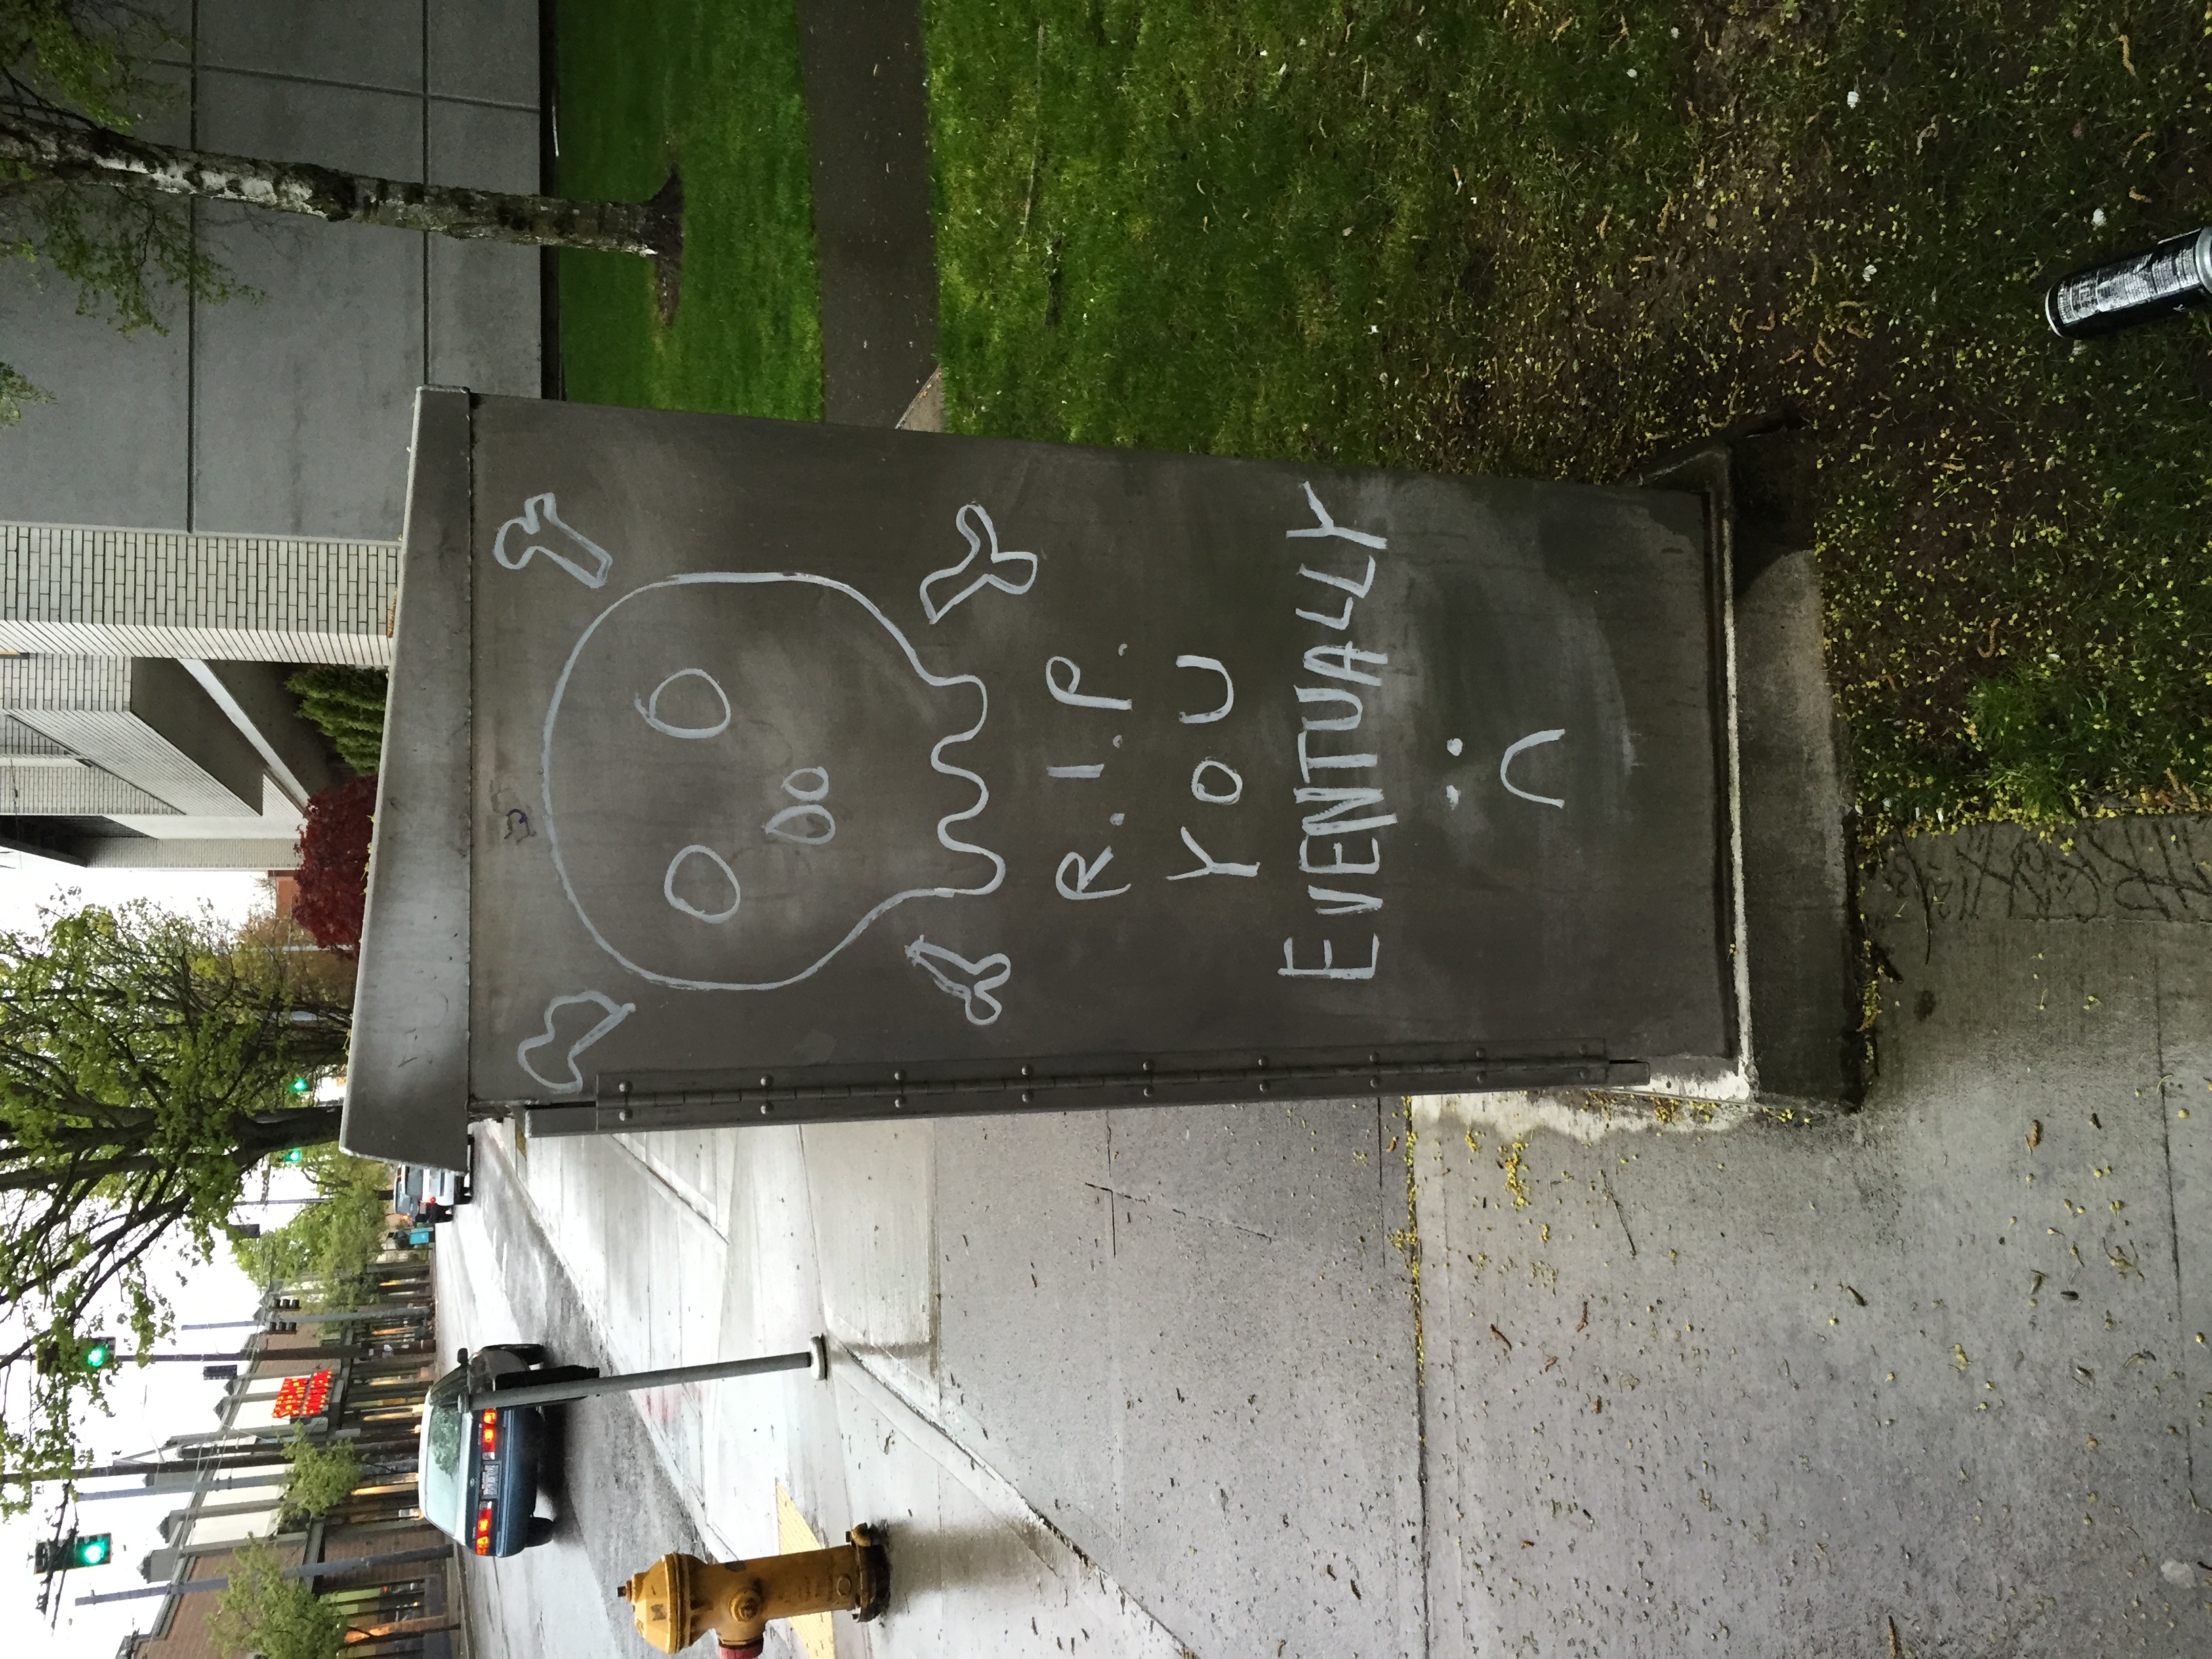 R.I.P.
YOU
EVENTUALLY